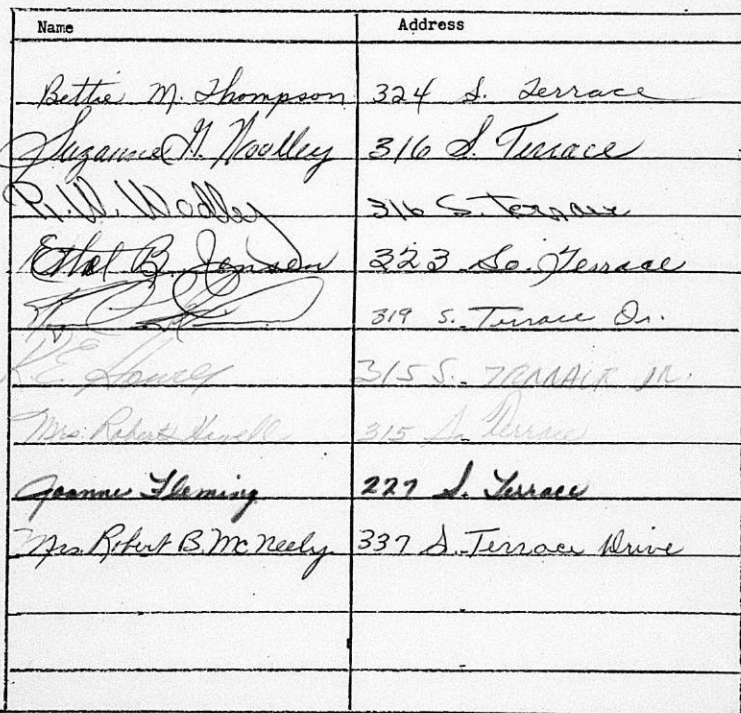 Name Address
Bettie M. Thompson 324 S. Terrace
Suzanne G. Woolley 316 S. Terrace
R. W. Woolley 316 S. Terrace
Ethel B. Jensen 323 So. Terrace
319 S. Terrace Dr.
R.E. Howell 315 S. TERRACE DR.
Mrs. Robert Howell 315 S. Terrace
Joanne Fleming 227 S. Terrace
Mrs. Robert B. McNeely 337 S. Terrace Drive